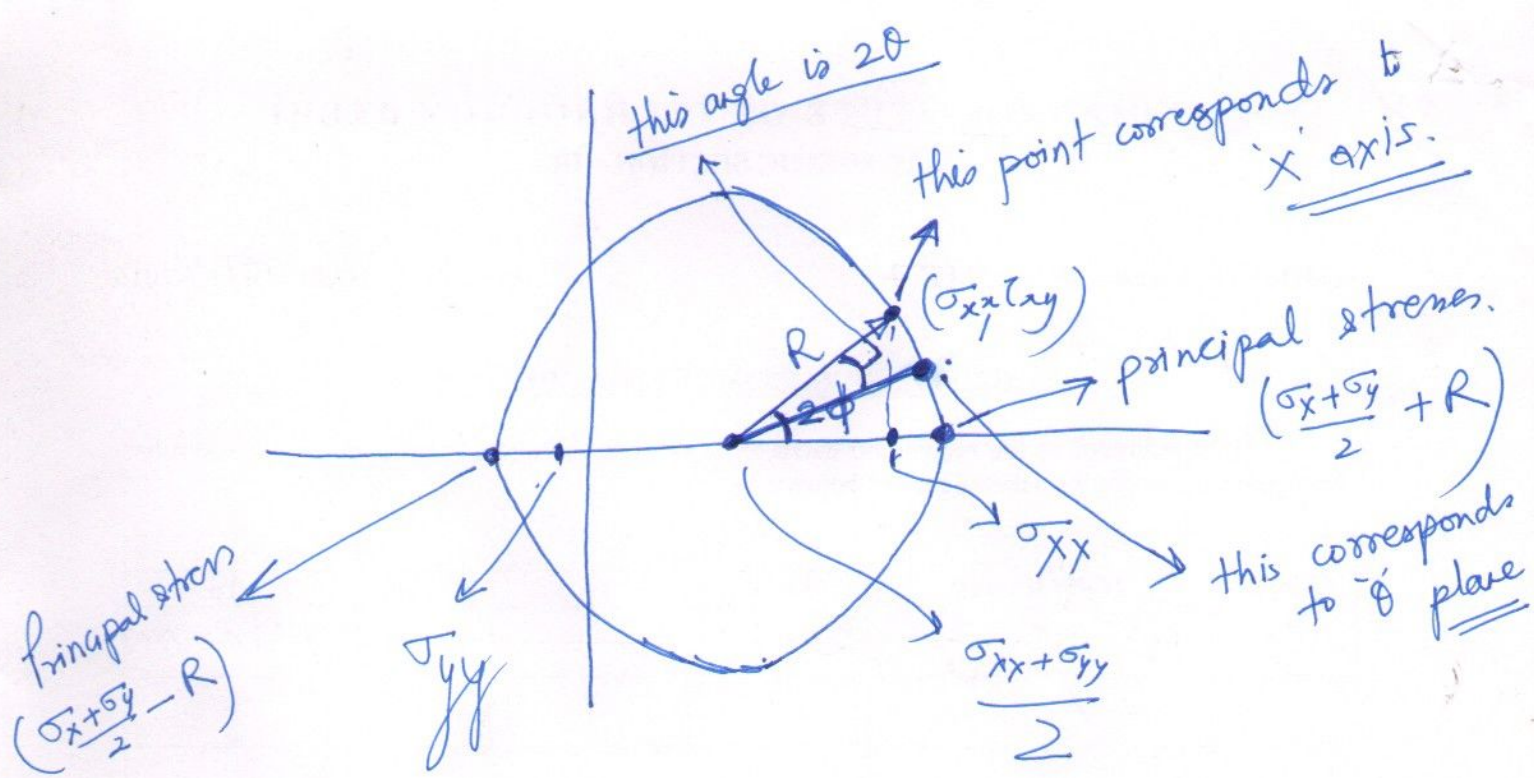 this angle is 2θ
this point corresponds to
'x' axis.
(σxx, τxy)
R
2ϕ
principal stresses.
(σx+σy/2 + R)
σxx
this corresponds
to 'θ' plane
σxx+σyy/2
σyy
Principal stress
(σx+σy/2 - R)